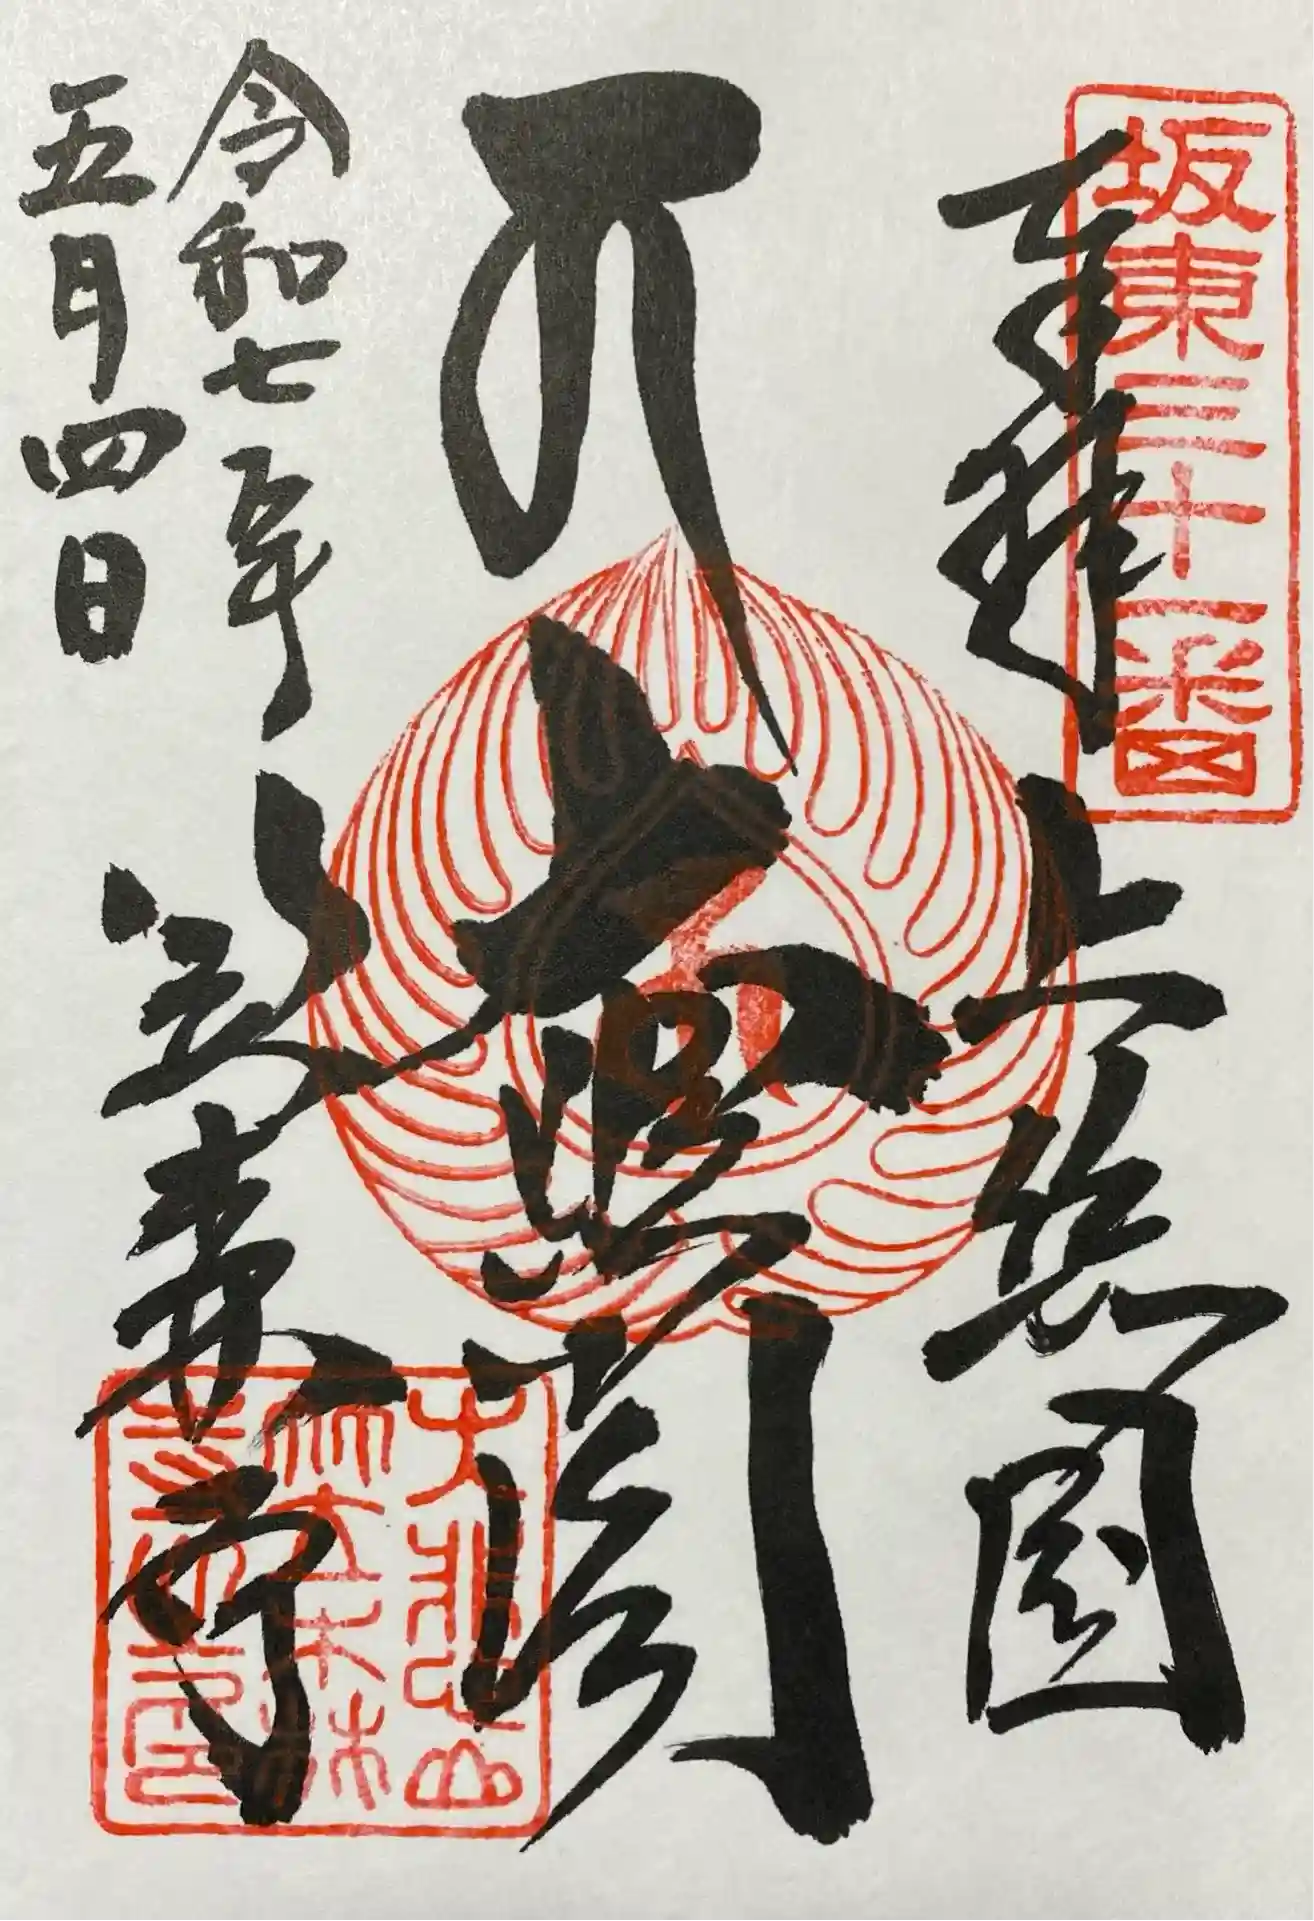 坂東三十一番
奉拝
上総国
大悲閣
令和七年
五月四日
笠森寺
大悲山
笠森
寺之印